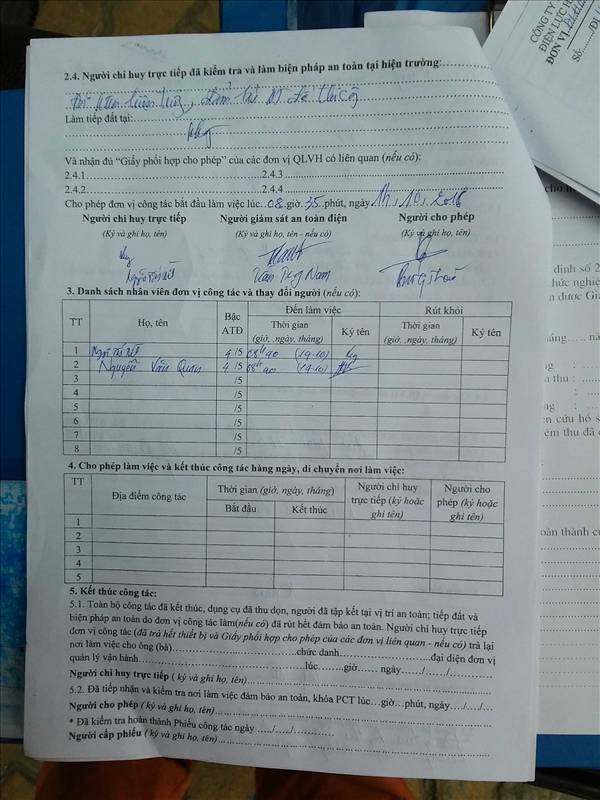 CÔNG TY
ĐIỆN LỰC
ĐƠN VỊ
Số:
2.4. Người chỉ huy trực tiếp đã kiểm tra và làm biện pháp an toàn tại hiện trường:
Làm tiếp đất tại:
Và nhận đủ “Giấy phối hợp cho phép” của các đơn vị QLVH có liên quan (nếu có):
2.4.1 2.4.3
2.4.2 2.4.4
Cho phép đơn vị công tác bắt đầu làm việc lúc..08.giờ.35.phút, ngày 14, 10, 2018
Người chỉ huy trực tiếp Người giám sát an toàn điện Người cho phép
(Ký và ghi họ, tên) (Ký và ghi họ, tên - nếu có) (Ký và ghi họ, tên)
Văn Nam
3. Danh sách nhân viên đơn vị công tác và thay đổi người (nếu có):
TT Họ, tên Bậc ATĐ Đến làm việc Rút khỏi
Thời gian (giờ, ,ngày, tháng) Ký tên Thời gian (giờ, ,ngày, tháng) Ký tên
1 4 /5 08h40 (14-10)
2 Nguyễn Văn Quan 4 /5 08h40 (14-10)
3 /5
4 /5
5 /5
6 /5
7 /5
8 /5
4. Cho phép làm việc và kết thúc công tác hàng ngày, di chuyển nơi làm việc:
TT Địa điểm công tác Thời gian (giờ, ngày, tháng) Người chỉ huy trực tiếp (ký hoặc ghi tên) Người cho phép (ký hoặc ghi tên)
Bắt đầu Kết thúc
1
2
3
4
5
5. Kết thúc công tác:
5.1. Toàn bộ công tác đã kết thúc, dụng cụ đã thu dọn, người đã tập kết tại vị trí an toàn; tiếp đất và
biện pháp an toàn do đơn vị công tác làm(nếu có) đã rút hết đảm bảo an toàn. Người chỉ huy trực tiếp
đơn vị công tác (đã trả hết thiết bị và Giấy phối hợp cho phép của các đơn vị liên quan - nếu có) trả lại
nơi làm việc cho ông (bà) chức danh đại diện đơn vị
quản lý vận hành lúc giờ ngày / /
Người chỉ huy trực tiếp ( ký và ghi họ, tên)
5.2. Đã tiếp nhận và kiểm tra nơi làm việc đảm bảo an toàn, khóa PCT lúc giờ phút, ngày / /
Người cho phép ( ký và ghi họ, tên)
* Đã kiểm tra hoàn thành Phiếu công tác ngày / /
Người cấp phiếu ( ký và ghi họ, tên)